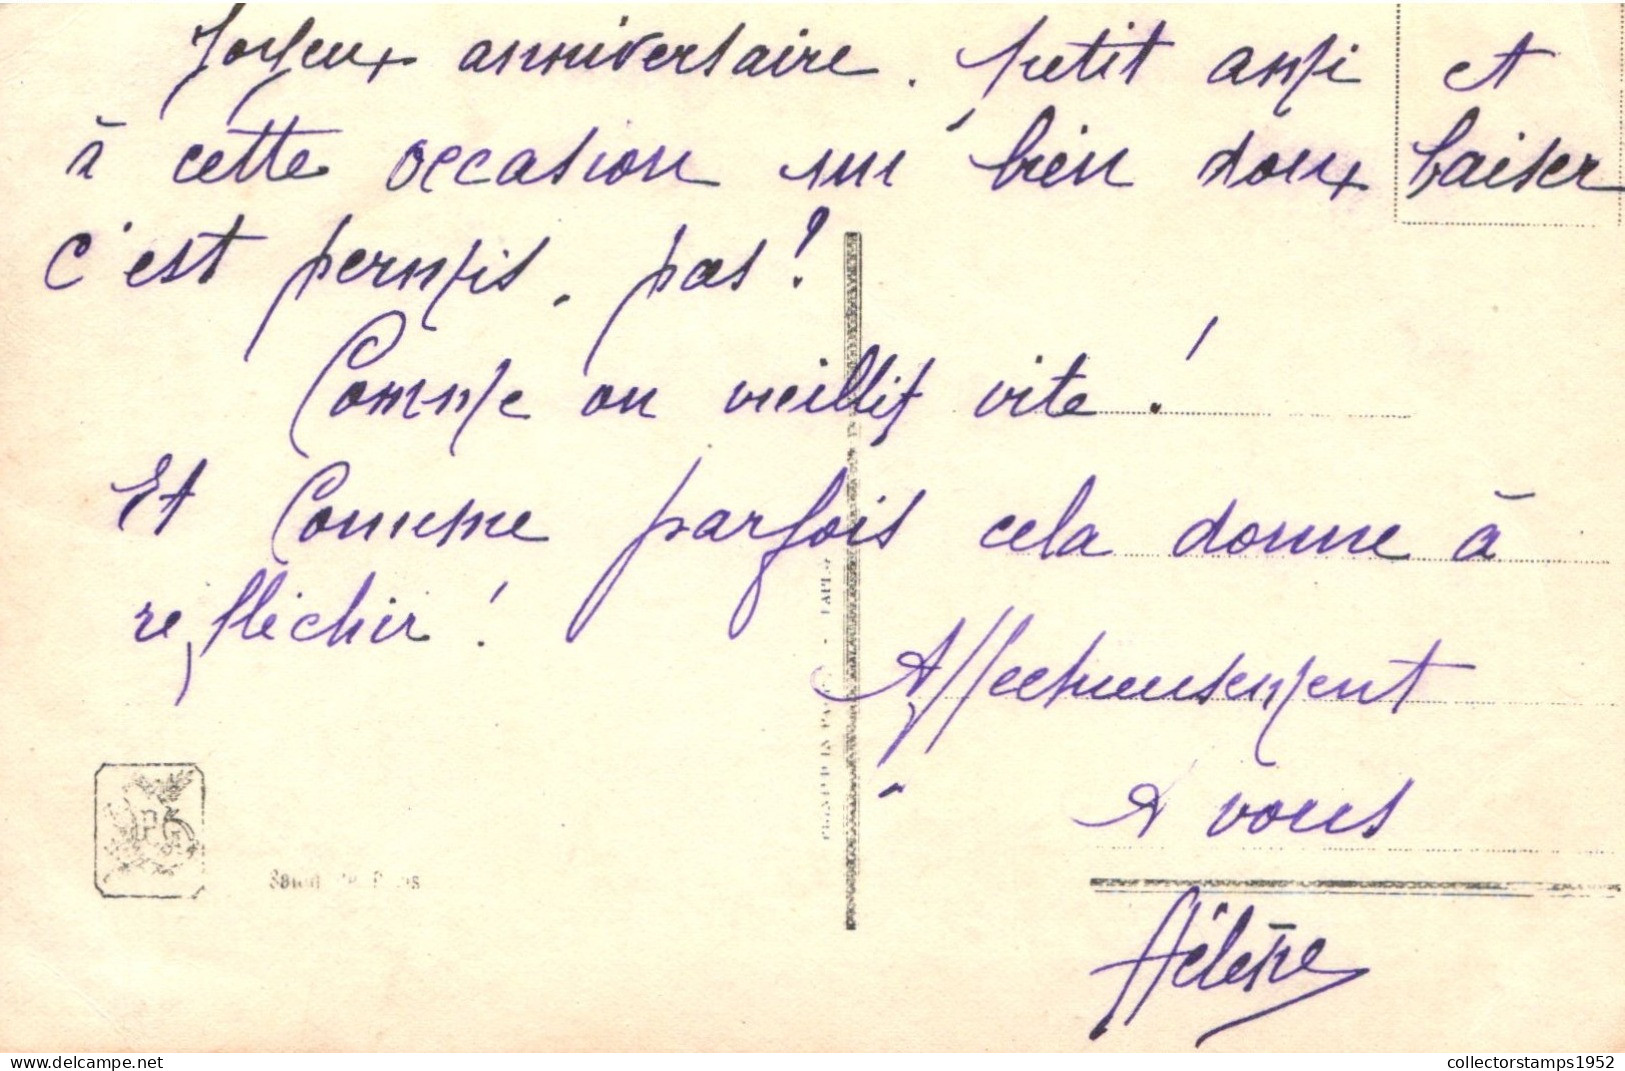 Joyeux anniversaire. petit ami et
à cette occasion un bien doux baiser
c'est permis, pas !
Comme on vieillit vite !
Et Comme parfois cela donne à
réfléchir !
Affectueusement
à vous
Hélène
Salon de Paris
delcampe.net
collectorstamps1952